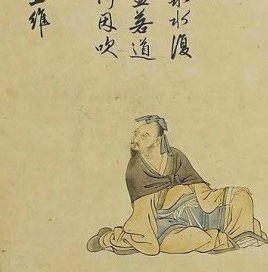 泉水復
盃若道
何因吹
王維